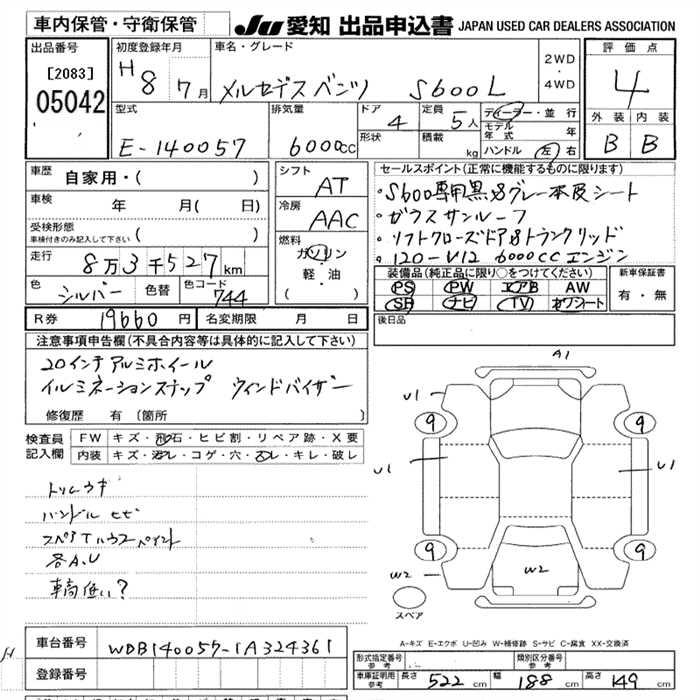 車内保管・守衛保管 JU 愛知 出品申込書 JAPAN USED CAR DEALERS ASSOCIATION
出品番号 [2083] 05042
初度登録年月 H 8 7月
車名・グレード メルセデスベンツ S600L
2WD・4WD
評価点 4
外装 内装
B B
型式 E-140057
排気量 6000cc
ドア 4
形状
定員 5人
積載 kg
ディーラー・並行
モデル年式 年
ハンドル 左・右
車歴 自家用・( )
車検 年 月( 日)
受検形態
車検付きのみ記入して下さい ( )
走行 8万3千527km
色 シルバー 色替 色コード 744
R券 19660円 名変期限 月 日
シフト AT
冷房 AAC
燃料 ガソリン
軽・油
( )
セールスポイント(正常に機能するものに限ります)
・S600専用黒&グレー本皮シート
・ガラスサンルーフ
・ソフトクローズドア&トランクリッド
・120-V12 6000ccエンジン
装備品(純正品に限り○をつけてください)
PS PW エアB AW
SR ナビ TV カワシート
新車保証書
有・無
後日品
注意事項申告欄(不具合内容等は具体的に記入して下さい)
20インチアルミホイール
イルミネーションステップ ウィンドバイザー
修復歴 有(箇所 )
検査員記入欄
FW キズ・飛石・ヒビ割・リペア跡・X要
内装 キズ・汚レ・コゲ・穴・スレ・キレ・破レ
トリムウキ
ハンドルヒビ
スペアTハウスペイント
各A.U
車高低い?
A1
U1
9 9
U1 U1
9 9
W2 W2
スペア
A-キズ E-エクボ U-凹み W-補修跡 S-サビ C-腐食 XX-交換済
車台番号 WDB140057-1A324361
登録番号
形式指定番号
参考
類別区分番号
参考
車庫証明用
参考
長さ 522cm 幅 188cm 高さ 149cm